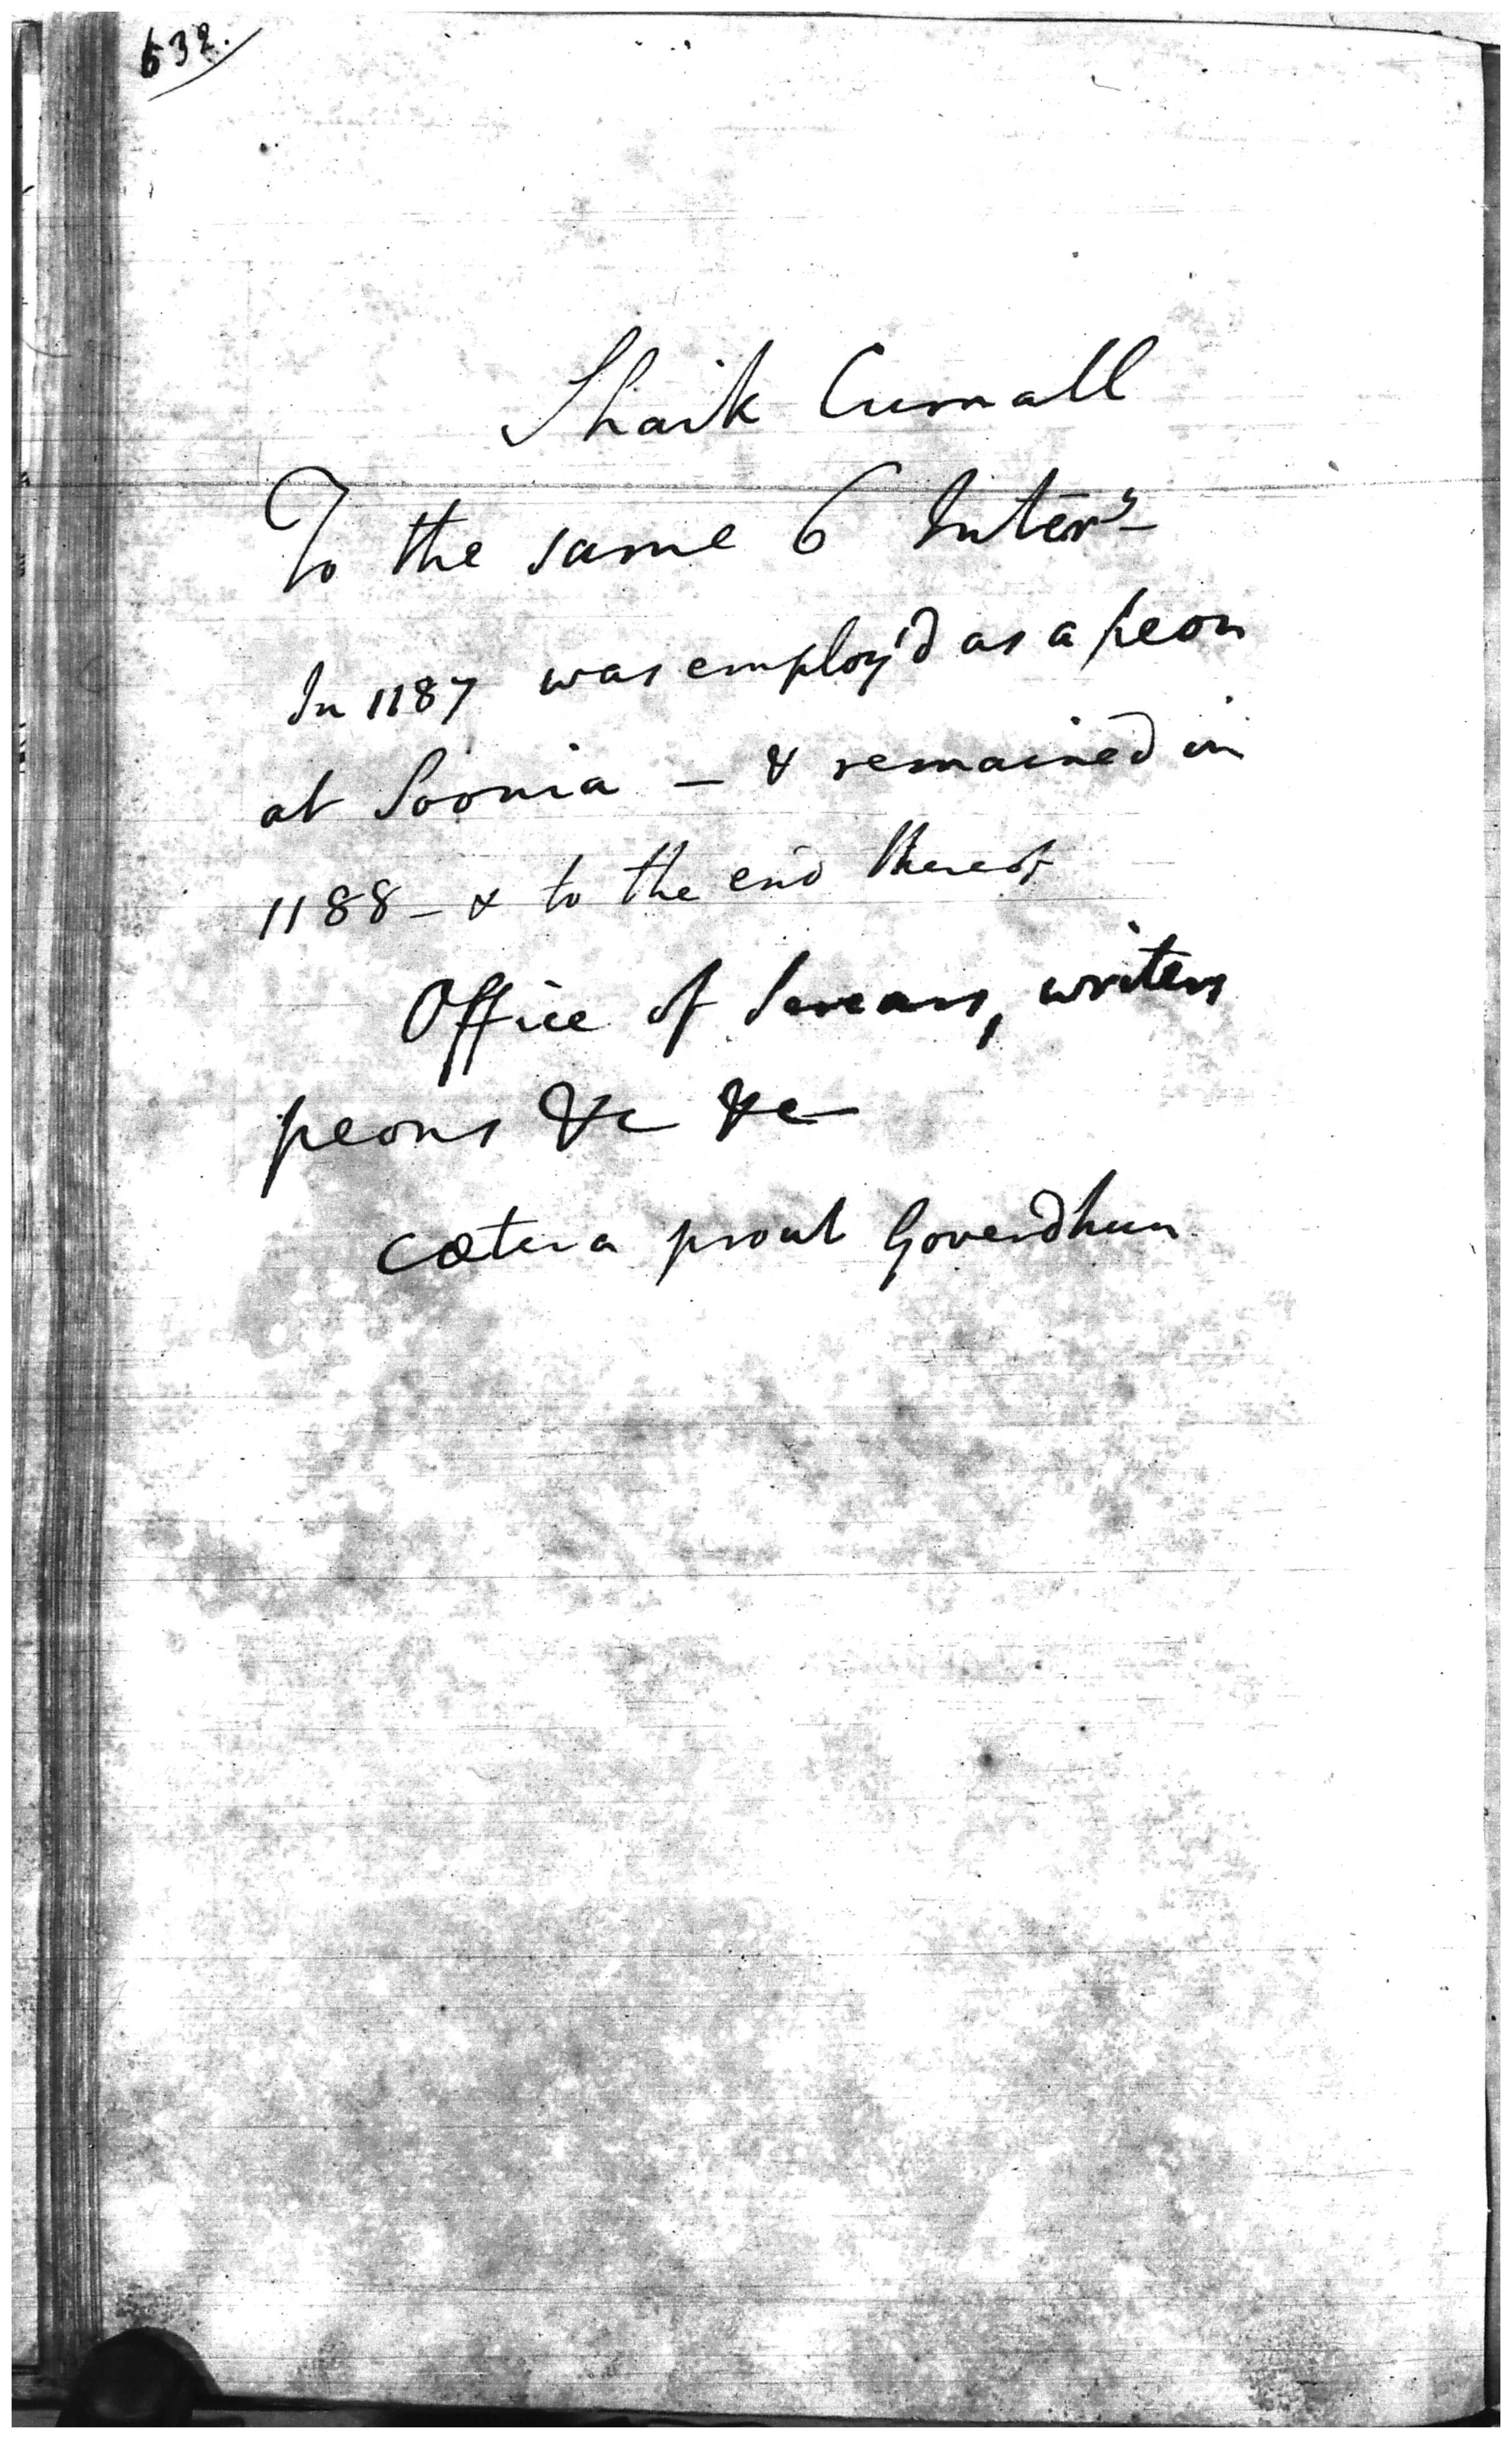 632.
Shaik Cumall
To the same 6 Inters
In 1187 was employ'd as a peon
at Soonia - & remained in
1188 - & to the end thereof
Office of writers
peons &c &c
Cætera prout Goverdhun